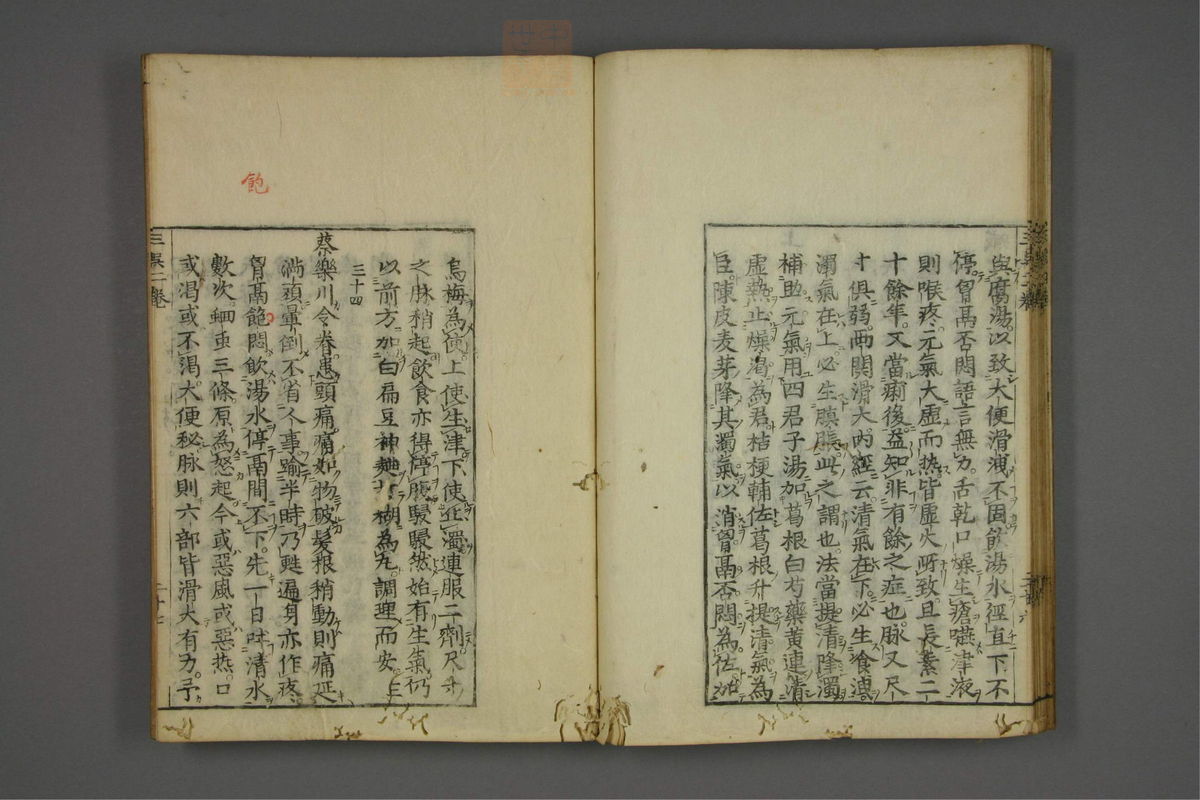 與腐湯以致大便滑洩不固飲湯水徑直下不
停胷鬲否悶語言無力舌乾口燥生瘡嚥津液
則喉疼元氣大虛而热皆虛火所致且長素二
十餘年又當痢後益知非有餘之症也脉又尺
寸俱弱兩関滑大内經云清氣在下必生飧洩
濁氣在上必生䐜脹此之謂也法當提清降濁
補助元氣用四君子湯加葛根白芍藥黃連清
虛热止燥渴為君桔梗輔佐葛根升提清氣為
臣陳皮麦芽降其濁氣以消胷鬲否悶為佐
烏梅為使上使生津下使止濁連服二劑尺寸
之脉稍起飲食亦得停腹駸駸然始有生氣仍
以前方加白扁豆神麯打糊為丸調理而安
三十四
蔡樂川令眷患頭痛痛如物破髮根稍動則痛延
滿頭暈倒不省人事踰半時乃甦遍身亦作疼
胷鬲飽悶飲湯水停鬲間不下先一日吐清水
數次蛔虫三條原為怒起今或惡風或惡热口
或渴或不渴大便秘脉則六部皆滑大有力予
飽